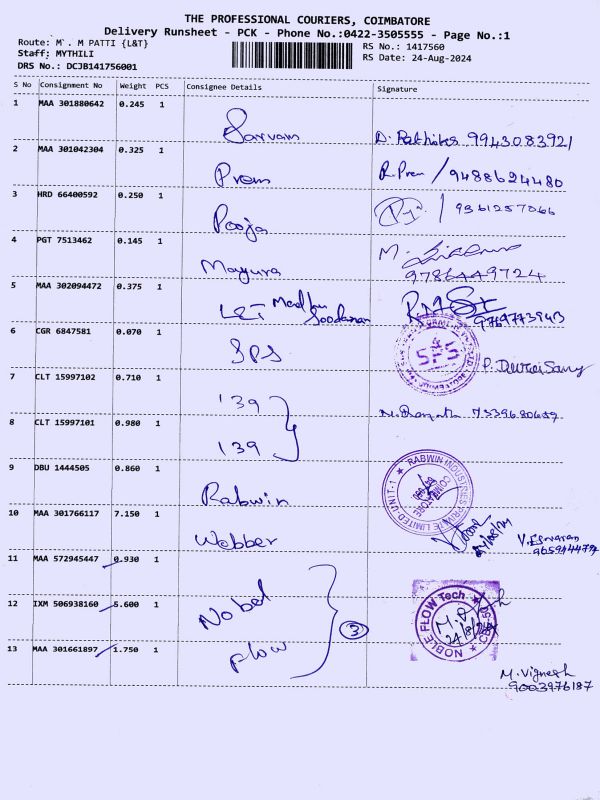 THE PROFESSIONAL COURIERS, COIMBATORE
Delivery Runsheet - PCK - Phone No.:0422-3505555 - Page No.:1
Route: M . M PATTI {L&T} RS No.: 1417560
Staff: MYTHILI RS Date: 24-Aug-2024
DRS No.: DCJB141756001
S No Consignment No Weight PCS Consignee Details Signature
1 MAA 301880642 0.245 1 Sarvam 9943083921
2 MAA 301042304 0.325 1 Prem R. Prem / 9488624480
3 HRD 66400592 0.250 1 Pooja 9361257066
4 PGT 7513462 0.145 1 Mayura M.
9786449724
5 MAA 302094472 0.375 1 L&T Madhu Soodanan
6 CGR 6847581 0.070 1 SPS SFS
7 CLT 15997102 0.710 1 139
8 CLT 15997101 0.980 1 139
9 DBU 1444505 0.860 1 Rabwin RABWIN INDUSTRIES PRIVATE LIMITED-UNIT-1 COIMBATORE
10 MAA 301766117 7.150 1 Webber V. Eswaran
11 MAA 572945447 0.930 1 Nobel
12 IXM 506938160 5.600 1 flow 3 NOBLE FLOW Tech 24/8/24
13 MAA 301661897 1.750 1
M. Vignesh
9003976187